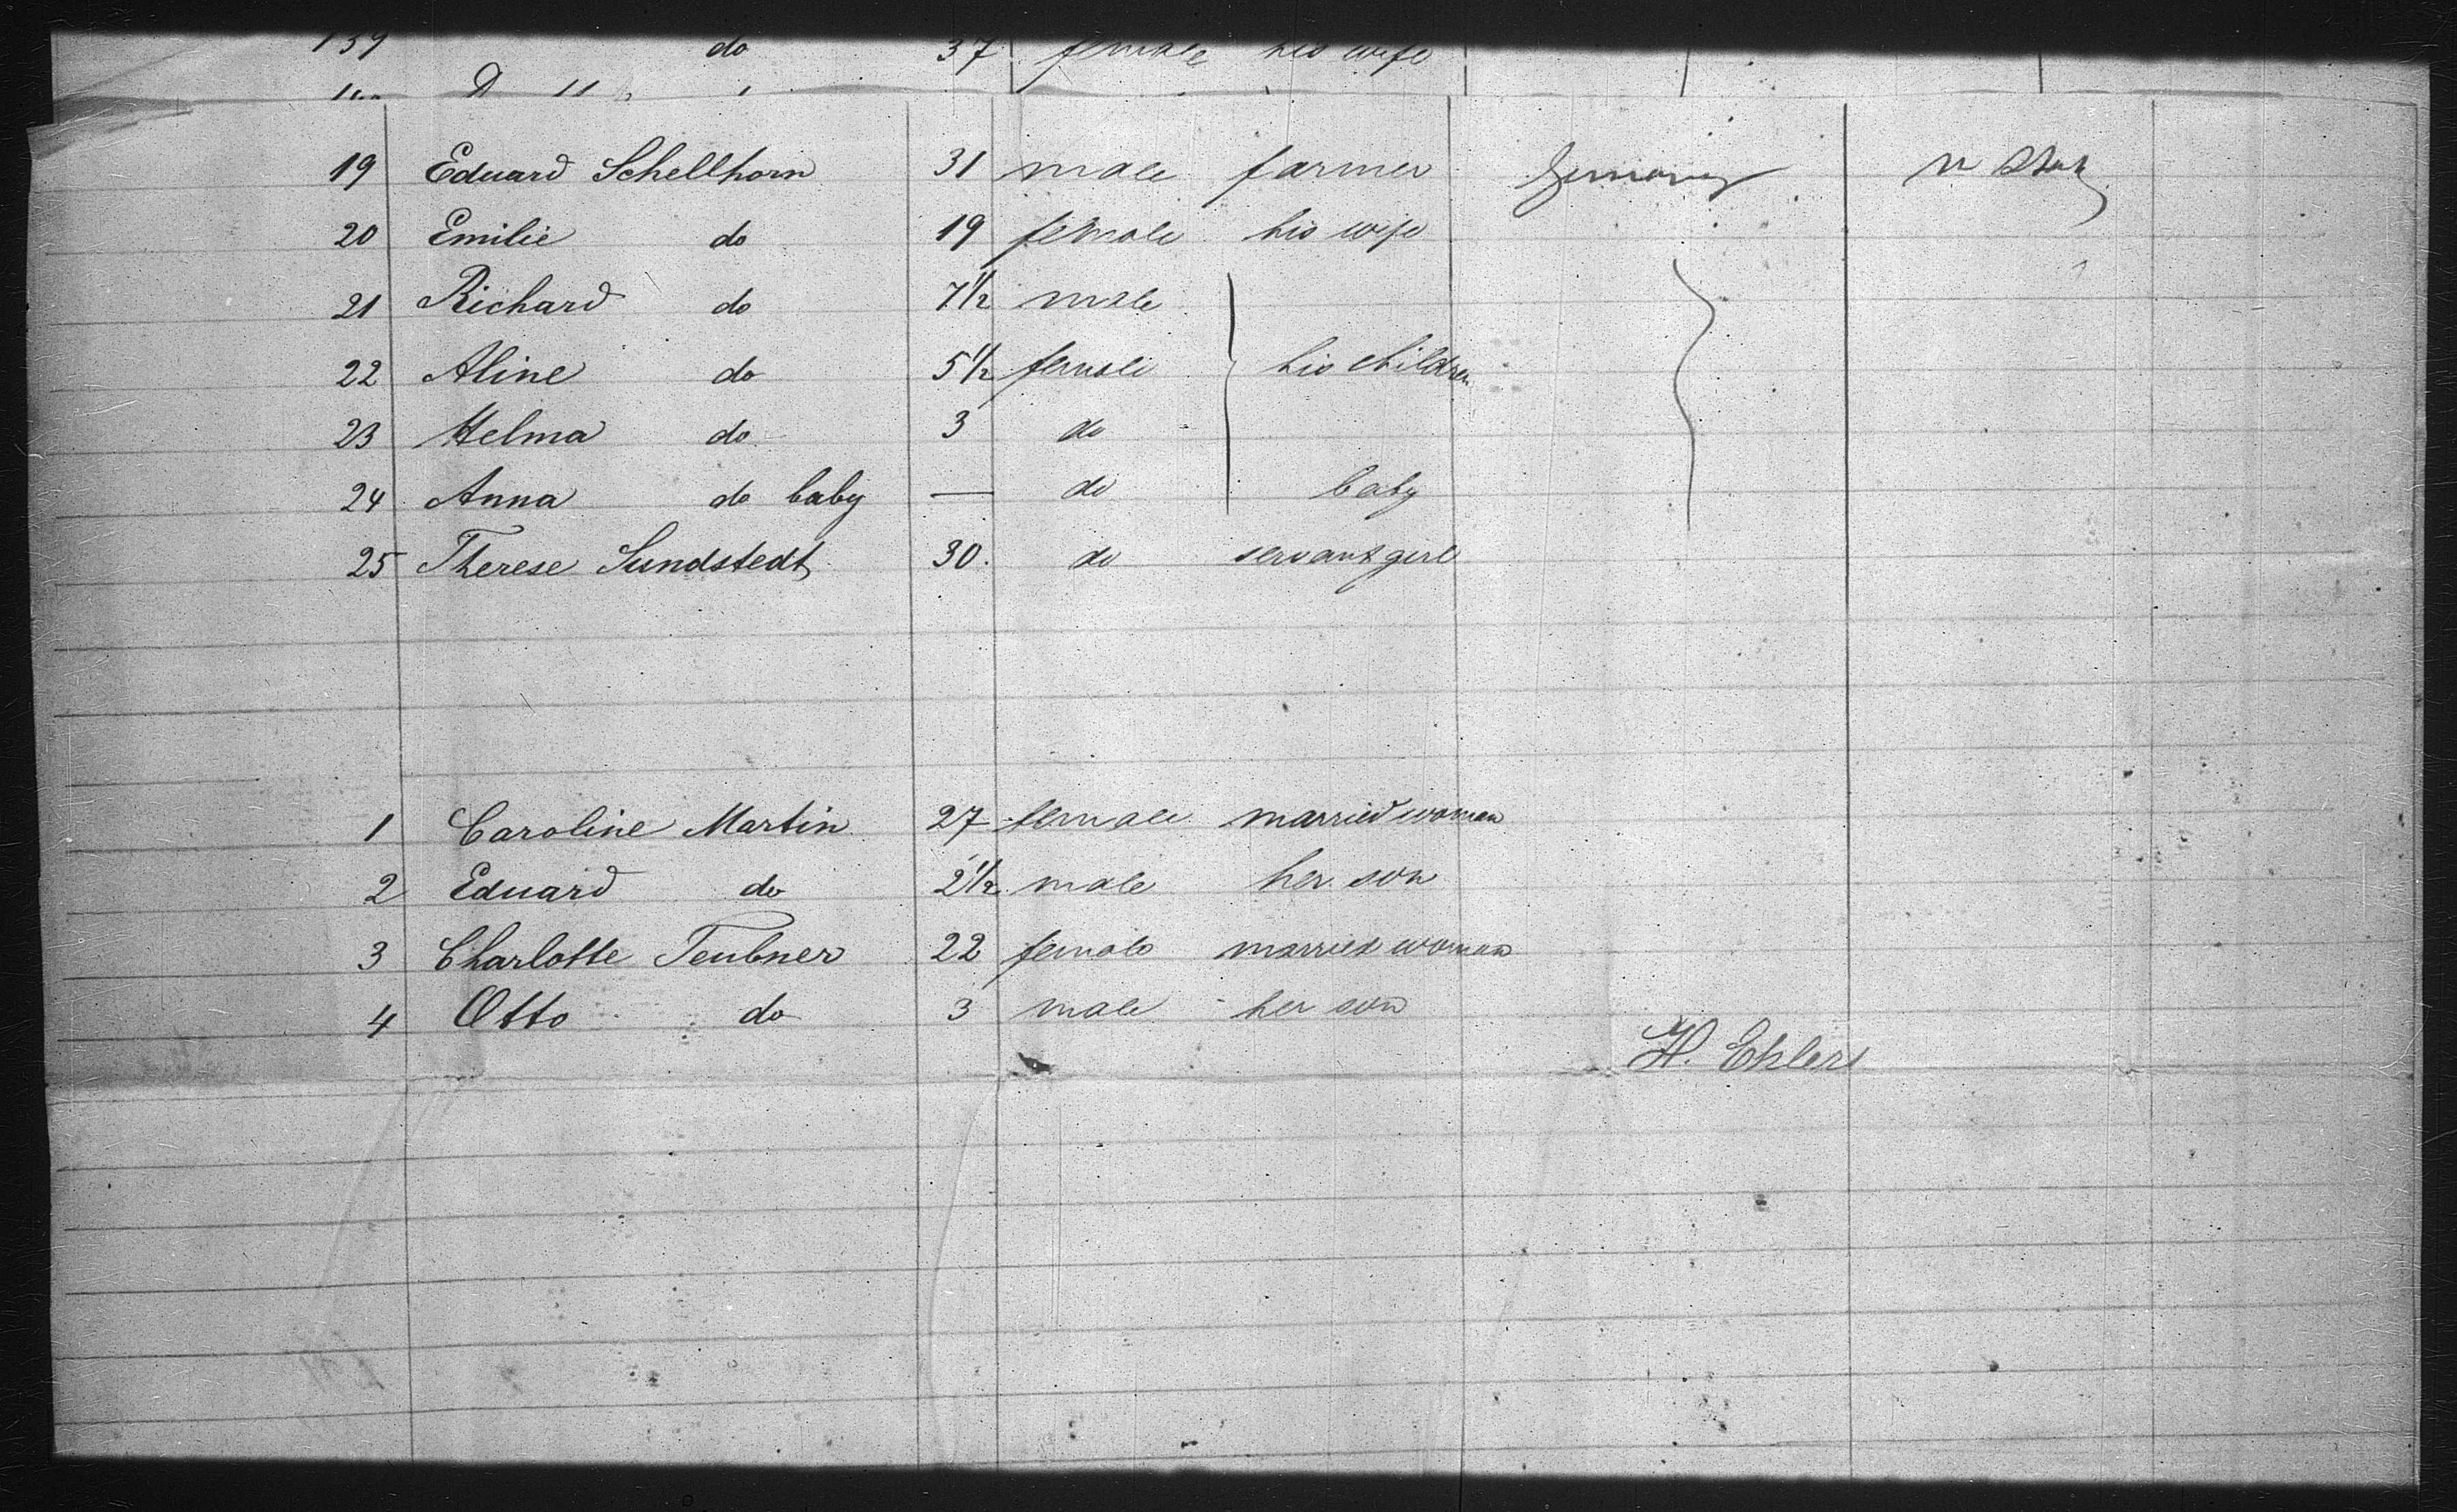 139 do 37 female his wife
19 Eduard Schellhorn 31 male farmer Germany
20 Emilie do 19 female his wife
21 Richard do 7 1/2 male
22 Aline do 5 1/2 female his children
23 Helma do 3 do
24 Anna do baby — do baby
25 Therese Sundstedt 30. do servant girl
1 Caroline Martin 27 female married woman
2 Eduard do 2 1/2 male her son
3 Charlotte Teubner 22 female married woman
4 Otto do 3 male her son
H. Ehlers